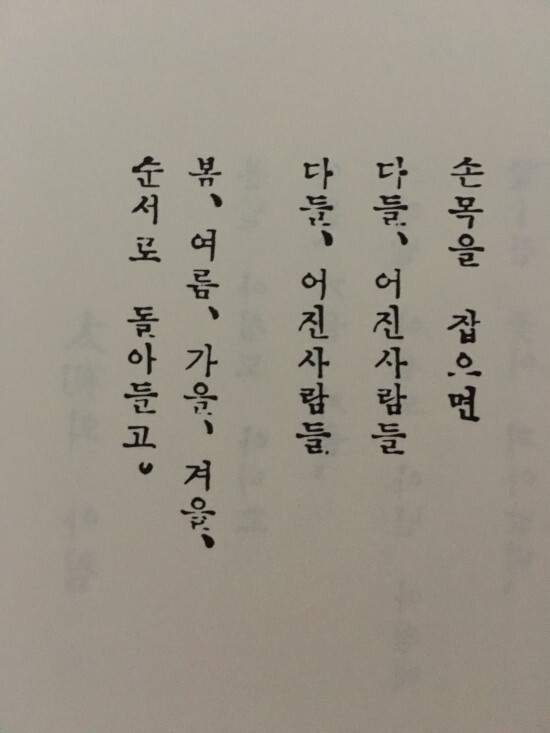 손목을 잡으면
다들、어진사람들
다들、어진사람들
봄、여름、가을、겨을、
순서로 돌아들고。